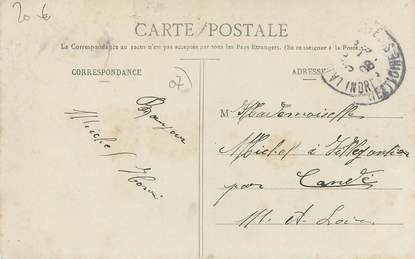 20 €
CARTE POSTALE
La Correspondance au recto n'est pas acceptée par tous les Pays Etrangers. (Se renseigner à la Poste)
CORRESPONDANCE
ADRESSE
07
Bonjour
Michel Henri
M Mademoiselle
Michel à
par Candé
M. et Loire